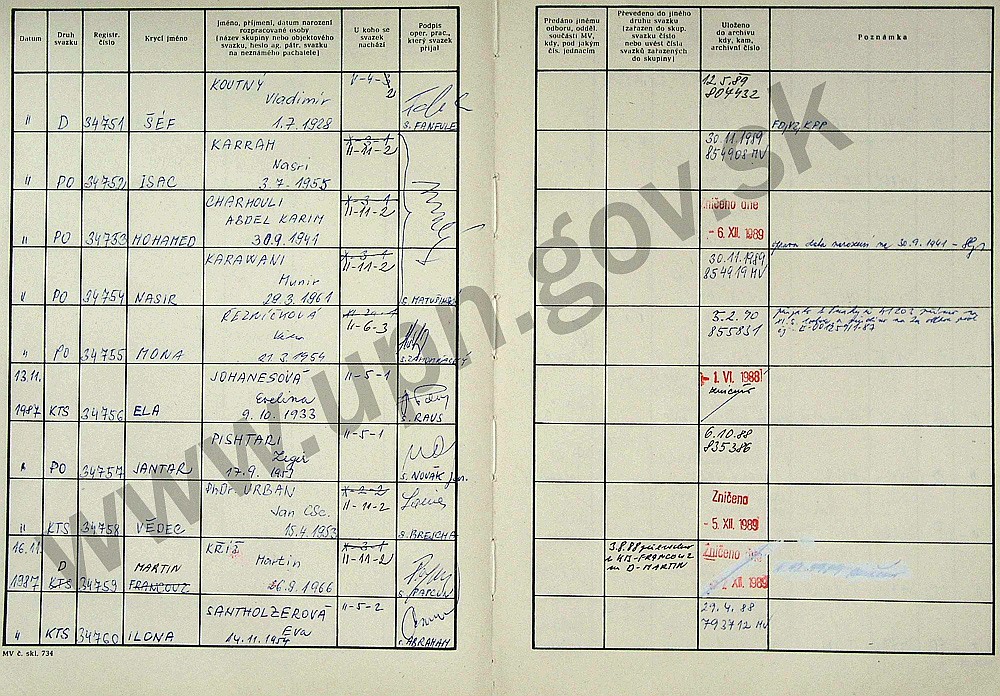 Datum
Druh svazku
Registr. číslo
Krycí jméno
Jméno, příjmení, datum narození rozpracované osoby (název skupiny nebo objektového svazku, heslo ag. pátr. svazku na neznámého pachatele)
U koho se svazek nachází
Podpis oper. prac., který svazek přijal
Předáno jinému odboru, odděl. součásti MV, kdy, pod jakým čís. jednacím
Převedeno do jiného druhu svazku (zařazen do skup. svazku číslo nebo uvést čísla svazků zařazených do skupiny)
Uloženo do archivu kdy, kam, archivní číslo
Poznámka
KOUTNÝ
Vladimír
" D 34751 ŠÉF 1.7.1928 S. FANFULE
12.5.89
804432
KARRAH
Nasri
" PO 34752 ISAC 3.7.1955
II-11-2
30.11.1989
854908 MV
CHARHOULI
ABDEL KARIM
" PO 34753 MOHAMED 30.9.1941
II-11-2
Zničeno dne
- 6. XII. 1989
oprava data narození na 30.9.1941
KARAWANI
Munir
" PO 34754 NASIR 29.3.1961
II-11-2
30.11.1989
854919 MV
ŘEZNÍČKOVÁ
" PO 34755 MONA 21.3.1954
II-6-3
5.2.90
855831
13.11.
JOHANESOVÁ
Evelina
1987 KTS 34756 ELA 9.10.1933
II-5-1
S. RAUS
- 1. VI. 1988
PISHTARI
" PO 34757 JANTAR 17.9.
II-5-1
S. NOVÁK Jan.
6.10.88
835386
PhDr. URBAN
Jan CSc.
" KTS 34758 VĚDEC 15.4.1953
II-11-2
S. BREJCHA
Zničeno
- 5. XII. 1989
16.11.
KŘÍŽ
D MARTIN Martin
1987 KTS 34759 FRANCOUZ 26.9.1966
II-11-2
3.8.88
KTS-FRANCOUZ
na D-MARTIN
Zničeno dne
XII. 1989
SANTHOLZEROVÁ
Eva
" KTS 34760 ILONA 24.11.1954
II-5-2
S. ABRAHAM
29.4.88
793712 MV
MV č. skl. 734
www.upn.gov.sk